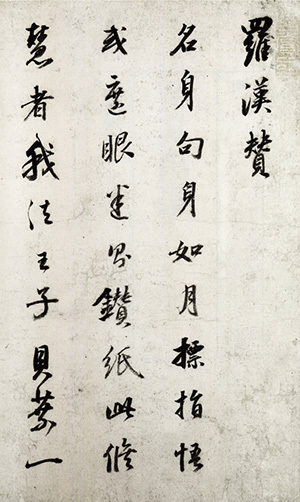 羅漢贊
名身句身如月標指悟
或遮眼迷即鑽紙此脩
慧者我法王子貝葉一